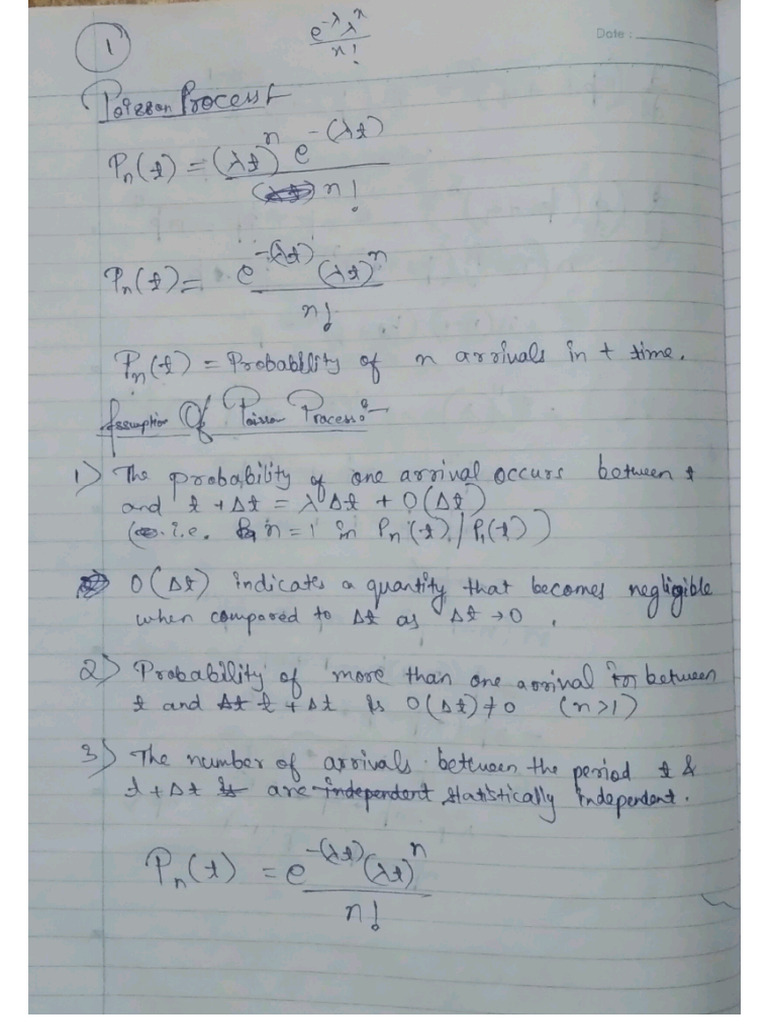 1
e^{-λ} λ^n
n!
Date :
Poisson Process
P_n(t) = (λt)^n e^{-(λt)}
n!
P_n(t) = e^{-(λt)} (λt)^n
n!
P_n(t) = Probability of n arrivals in t time.
Assumption Of Poisson Process:-
1) The probability of one arrival occurs between t
and t + Δt = λΔt + O(Δt)
(i.e. n = 1 in P_n(t) / P_1(t))
O(Δt) indicates a quantity that becomes negligible
when compared to Δt as Δt → 0 .
2) Probability of more than one arrival between
t and t + Δt is O(Δt) ≠ 0 (n >1)
3) The number of arrivals between the period t &
t + Δt are independent statistically independent.
P_n(t) = e^{-(λt)} (λt)^n
n!